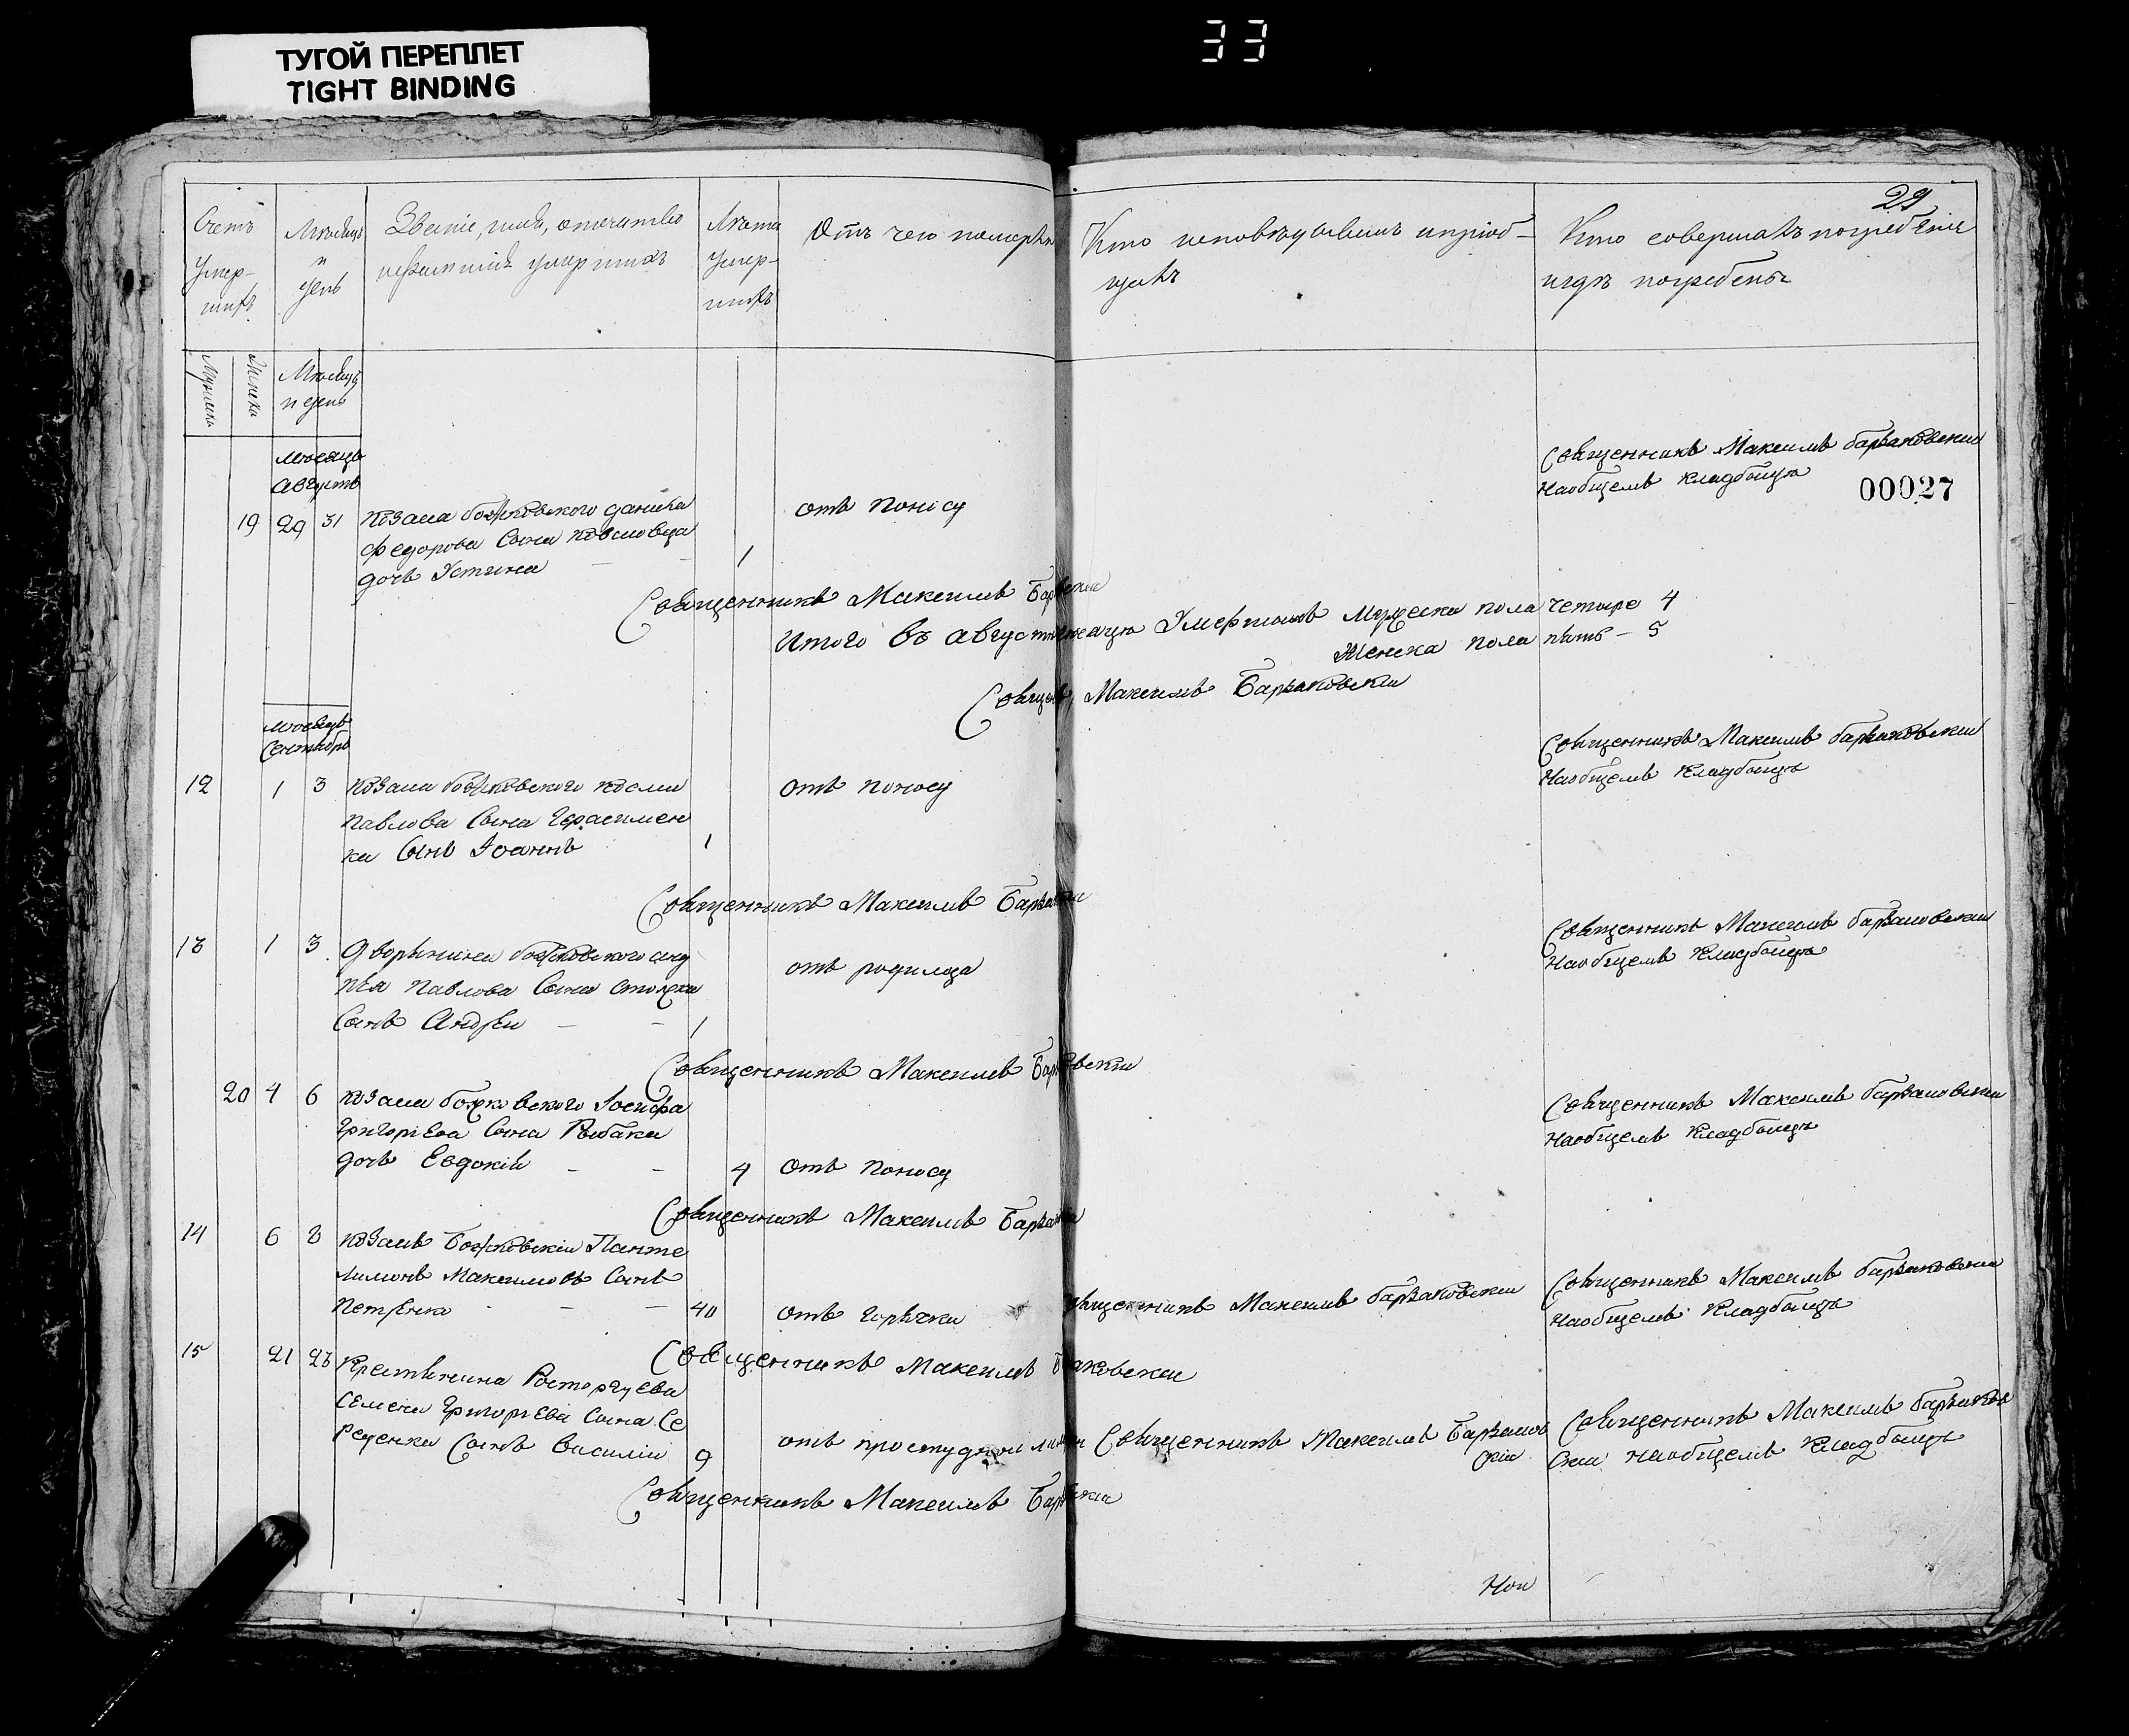 33
ТУГОЙ ПЕРЕПЛЕТ
TIGHT BINDING
29
Счетъ
Умер-
шихъ
Мѣсяцъ
и
день
Званіе, имя, отечество
умершихъ
Лѣта
Умер-
шихъ
Отъ чего померъ
Кто исповѣдывалъ и пріоб-
щалъ
Кто совершалъ погребеніе
и гдѣ погребены
Мужеска
Женска
Мѣсяцъ
и день
Мѣсяцъ
Августъ
19 29 31 козака божковского данила
федорова Сына
дочь Устина 1
отъ поносу
Священникъ Максимъ барзаковскии
На общемъ кладбищѣ
00027
Священникъ Максимъ
Итого въ августѣ месяцѣ Умершихъ Мужеска пола четыре 4
Женска пола пять – 5
Максимъ Барзаковскіи
Мѣсяцъ
Сентябрь
12 1 3 козака божковского космы
павлова Сына Герасимен
ка Сынъ Іоаннъ 1
отъ поносу
Священникъ Максимъ барзаковскии
На общемъ кладбищѣ
Священникъ Максимъ
13 1 3 дворянина божковского
павлова Сына
Сынъ Андрѣи 1
отъ родимца
Священникъ Максимъ барзаковскии
На общемъ кладбищѣ
Священникъ Максимъ
20 4 6 козака божковского Іосифа
григоріева Сына Рыбака
дочь Евдокія 4
отъ поносу
Священникъ Максимъ барзаковскии
На общемъ кладбищѣ
Священникъ Максимъ
14 6 8 козакъ Божковскіи Панте
лимонъ Максимовъ Сынъ
петренко 40
отъ горячки
Максимъ барзаковскии
Священникъ Максимъ барзаковскии
На общемъ кладбищѣ
Священникъ Максимъ
15 21 23 Крестянина
Семена григоріева Сына Се
реденка Сынъ Василіи 9
отъ простудной
Священникъ Максимъ Барзаков
скіи
Священникъ Максимъ барзаков
скии На общемъ кладбищѣ
Священникъ Максимъ